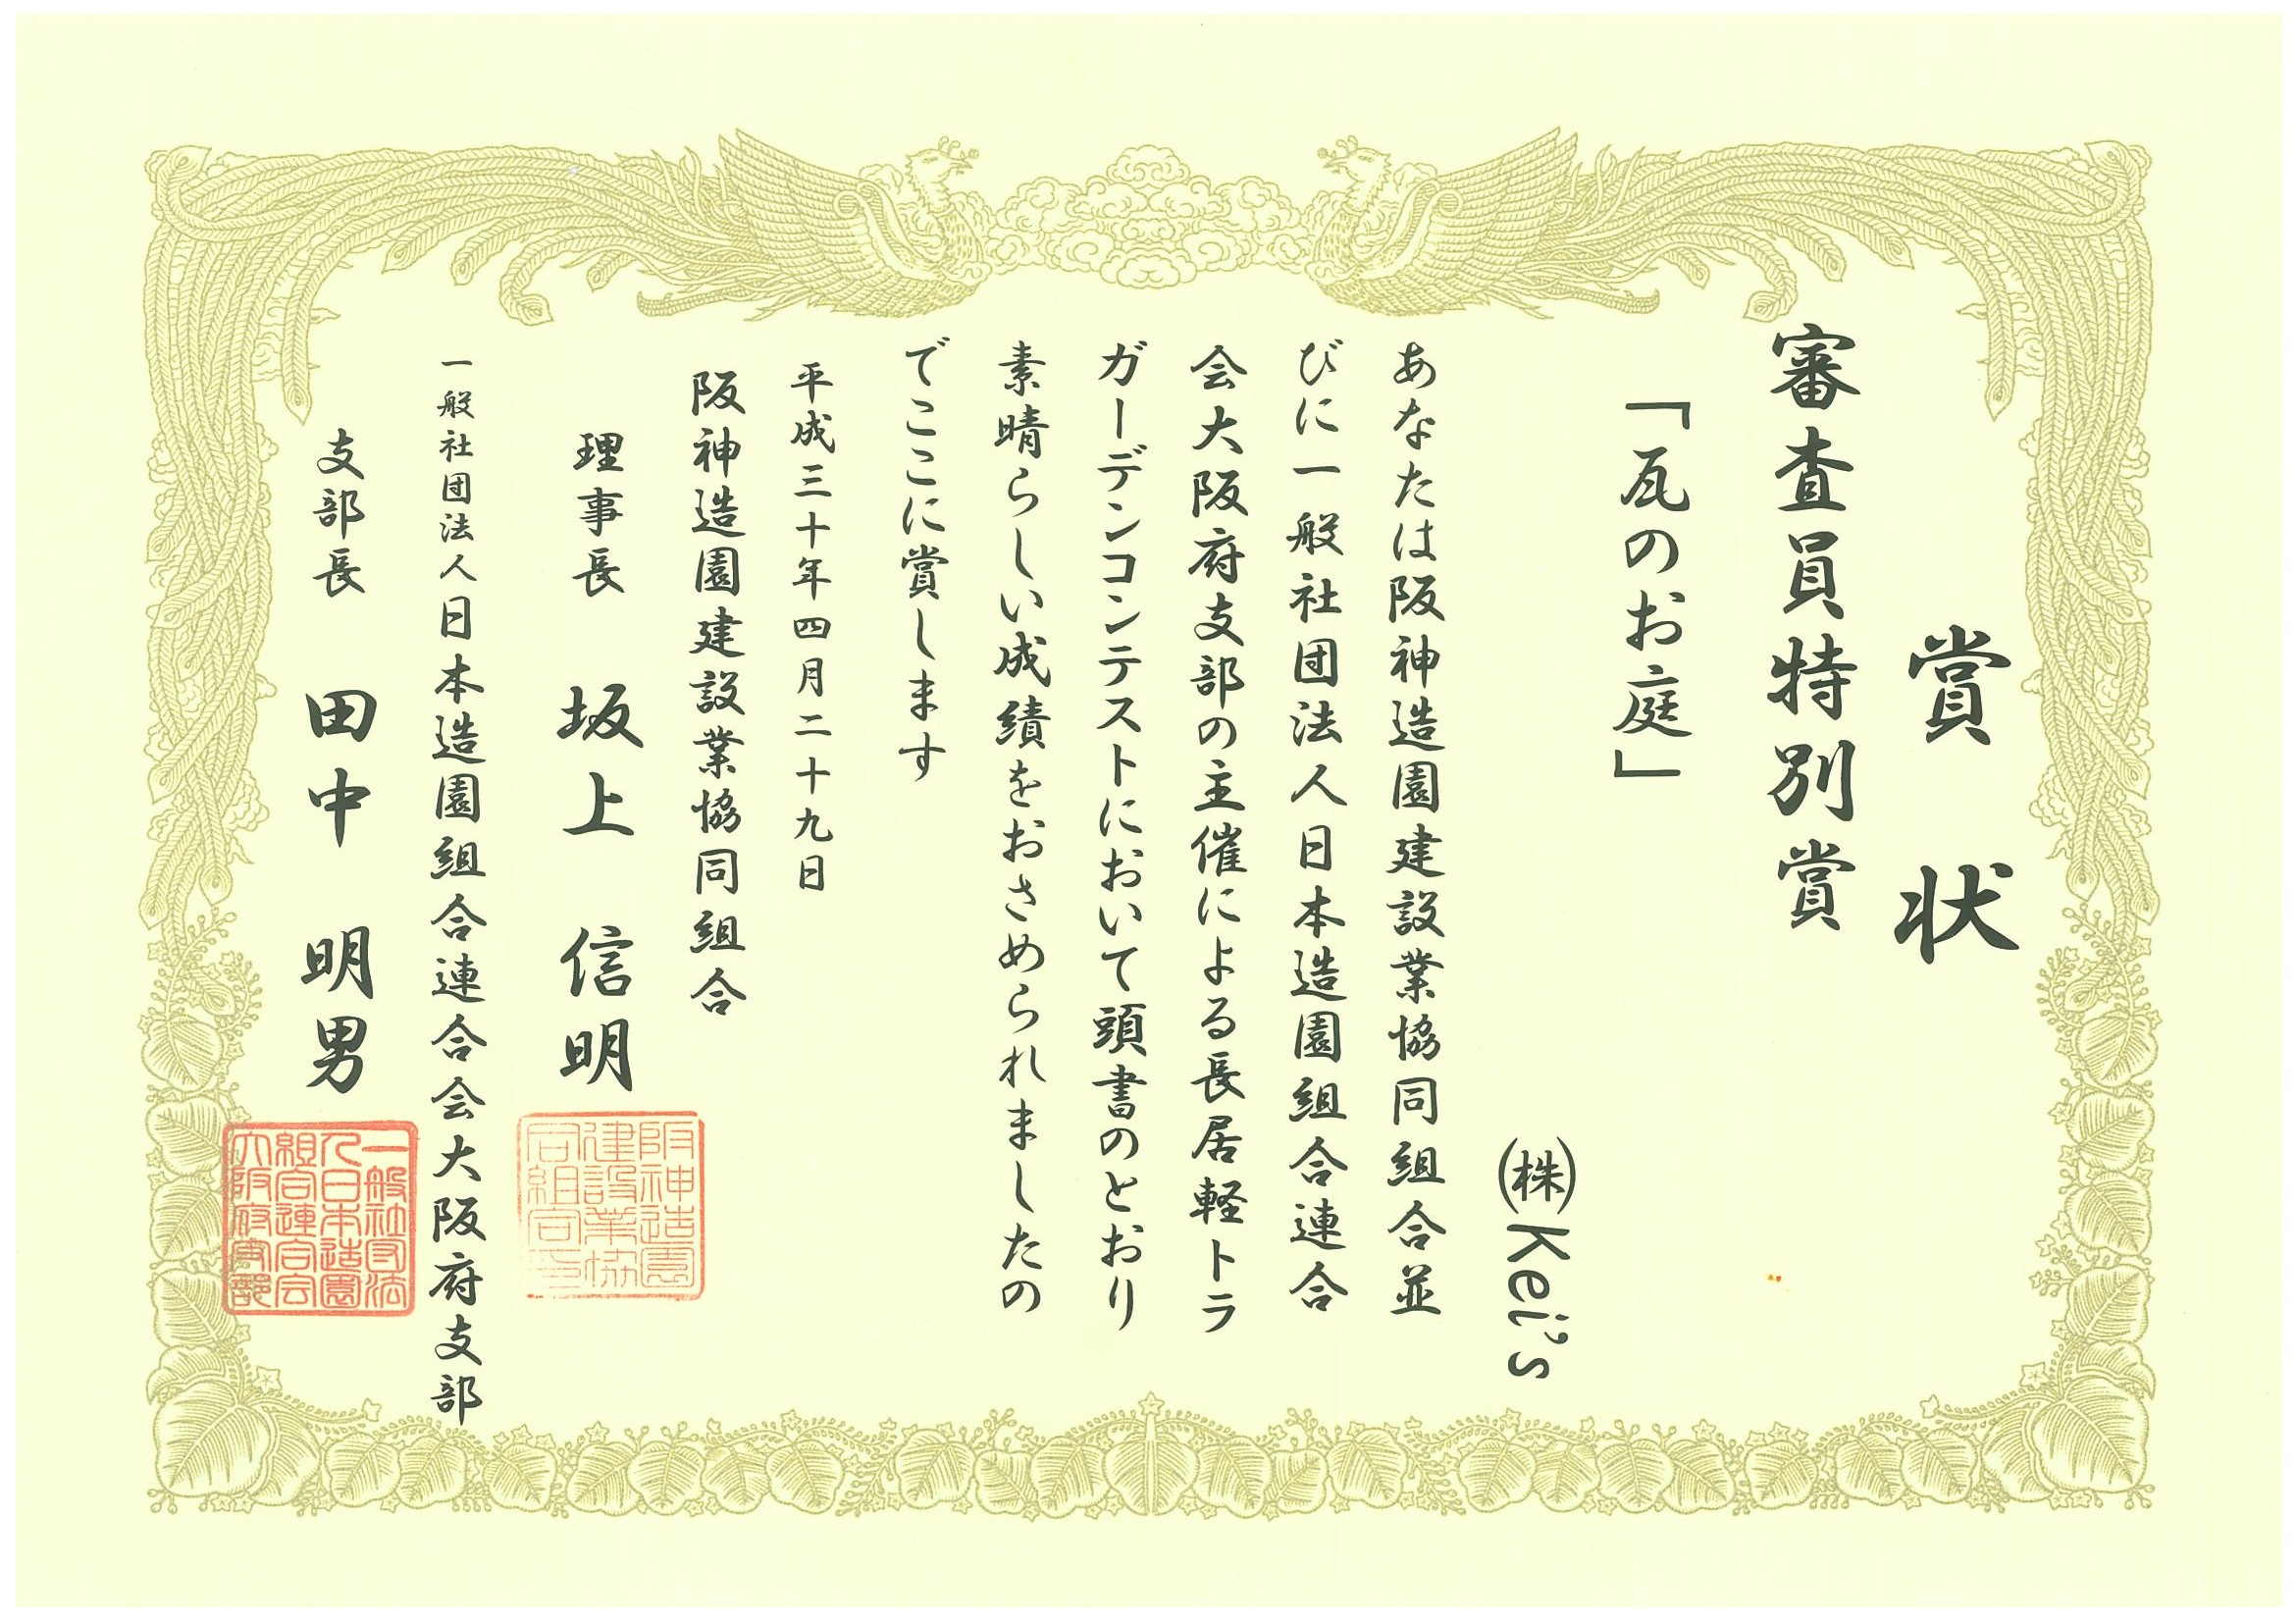 賞状
審査員特別賞
「瓦のお庭」
㈱Kei's
あなたは阪神造園建設業協同組合並
びに一般社団法人日本造園組合連合
会大阪府支部の主催による長居軽トラ
ガーデンコンテストにおいて頭書のとおり
素晴らしい成績をおさめられましたの
でここに賞します
平成三十年四月二十九日
阪神造園建設業協同組合
理事長 坂上 信明
阪神造園
建設業協
同組合印
一般社団法人日本造園組合連合会大阪府支部
支部長 田中 明男
一般社団法
人日本造園
組合連合会
大阪府支部